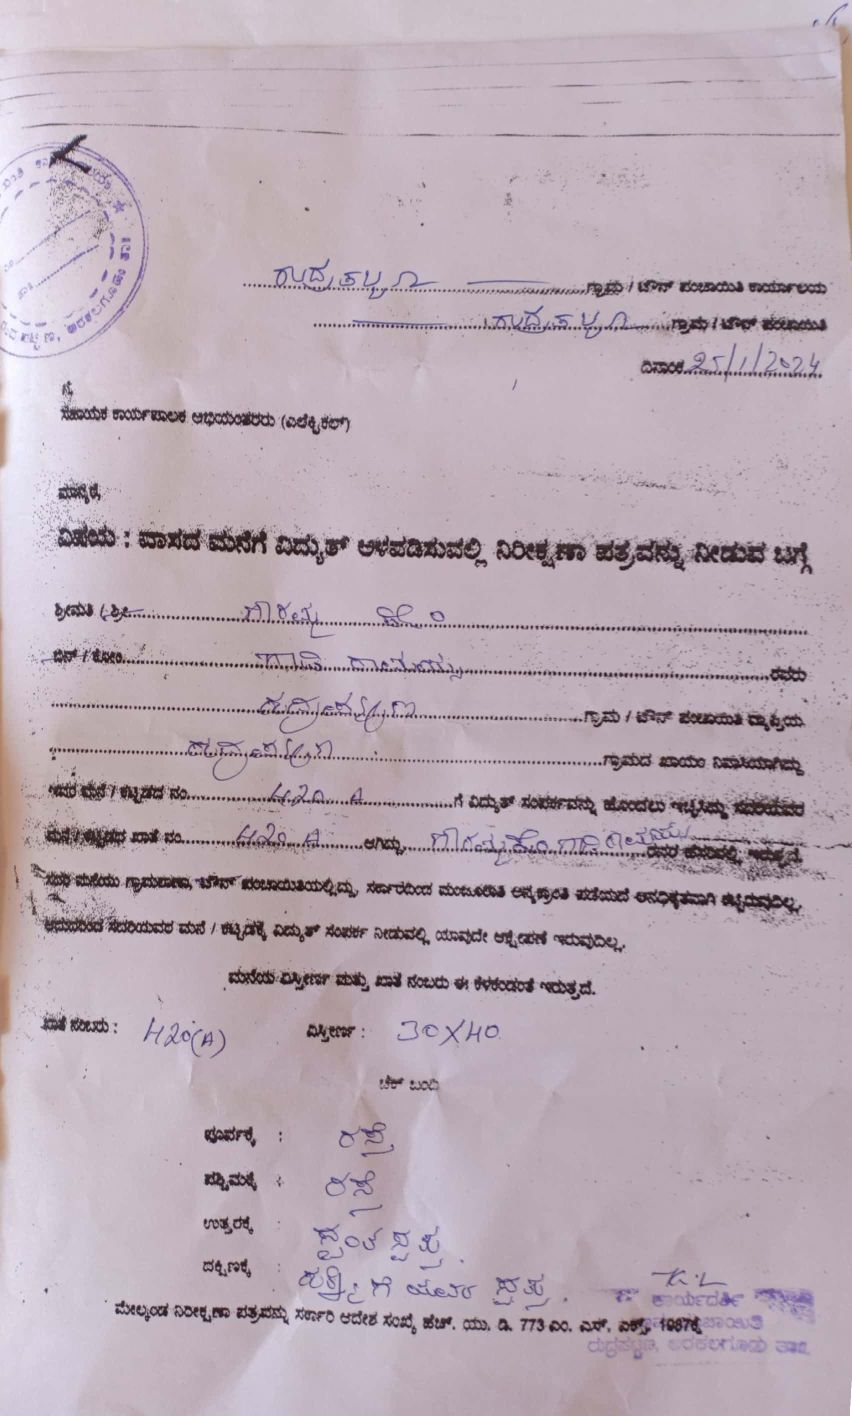 ರುದ್ರಪಟ್ಟಣ ಗ್ರಾಮ / ಟೌನ್ ಪಂಚಾಯಿತಿ ಕಾರ್ಯಾಲಯ
ರುದ್ರಪಟ್ಟಣ ಗ್ರಾಮ / ಟೌನ್ ಪಂಚಾಯಿತಿ
ದಿನಾಂಕ 25/1/2024
ಗೆ,
ಸಹಾಯಕ ಕಾರ್ಯಪಾಲಕ ಅಭಿಯಂತರರು (ಎಲೆಕ್ಟ್ರಿಕಲ್)
ಮಾನ್ಯರೆ,
ವಿಷಯ : ವಾಸದ ಮನೆಗೆ ವಿದ್ಯುತ್ ಅಳವಡಿಸುವಲ್ಲಿ ನಿರೀಕ್ಷಣಾ ಪತ್ರವನ್ನು ನೀಡುವ ಬಗ್ಗೆ
ಶ್ರೀಮತಿ / ಶ್ರೀ ಗೌರಮ್ಮ ಕೋಂ
ಬಿನ್ / ಕೋಂ ರವರು
ಗ್ರಾಮ / ಟೌನ್ ಪಂಚಾಯಿತಿ ವ್ಯಾಪ್ತಿಯ
ಗ್ರಾಮದ ಖಾಯಂ ನಿವಾಸಿಯಾಗಿದ್ದು
ಇವರ ಮನೆ / ಕಟ್ಟಡದ ನಂ. 420 A ಗೆ ವಿದ್ಯುತ್ ಸಂಪರ್ಕವನ್ನು ಹೊಂದಲು ಇಚ್ಛಿಸಿದ್ದು ಸದರಿಯವರ
ಮನೆ / ಕಟ್ಟಡದ ಖಾತೆ ನಂ. 420 A ಆಗಿದ್ದು, ರವರ ಹೆಸರಿನಲ್ಲಿ ಇರುತ್ತದೆ.
ಸದರಿ ಮನೆಯು ಗ್ರಾಮಠಾಣಾ, ಟೌನ್ ಪಂಚಾಯಿತಿಯಲ್ಲಿದ್ದು, ಸರ್ಕಾರದಿಂದ ಮಂಜೂರಾತಿ ಪಡೆಯದೆ ಅನಧಿಕೃತವಾಗಿ ಕಟ್ಟಿರುವುದಿಲ್ಲ.
ಆದುದರಿಂದ ಸದರಿಯವರ ಮನೆ / ಕಟ್ಟಡಕ್ಕೆ ವಿದ್ಯುತ್ ಸಂಪರ್ಕ ನೀಡುವಲ್ಲಿ ಯಾವುದೇ ಆಕ್ಷೇಪಣೆ ಇರುವುದಿಲ್ಲ.
ಮನೆಯ ವಿಸ್ತೀರ್ಣ ಮತ್ತು ಖಾತೆ ನಂಬರು ಈ ಕೆಳಕಂಡಂತೆ ಇರುತ್ತದೆ.
ಖಾತೆ ನಂಬರು : 420(A) ವಿಸ್ತೀರ್ಣ : 30X40
ಚೆಕ್ ಬಂದಿ
ಪೂರ್ವಕ್ಕೆ : ರಸ್ತೆ
ಪಶ್ಚಿಮಕ್ಕೆ : ರಸ್ತೆ
ಉತ್ತರಕ್ಕೆ : ಸ್ವಂತ ಸ್ವತ್ತು
ದಕ್ಷಿಣಕ್ಕೆ : ಸ್ವತ್ತು.
ಮೇಲ್ಕಂಡ ನಿರೀಕ್ಷಣಾ ಪತ್ರವನ್ನು ಸರ್ಕಾರಿ ಆದೇಶ ಸಂಖ್ಯೆ ಹೆಚ್. ಯು. ಡಿ. 773 ಎಂ. ಎನ್. ಎಕ್ಸ್. 1987ಕ್ಕೆ
ಕಾರ್ಯದರ್ಶಿ
ರುದ್ರಪಟ್ಟಣ, ಅರಕಲಗೂಡು ತಾ||